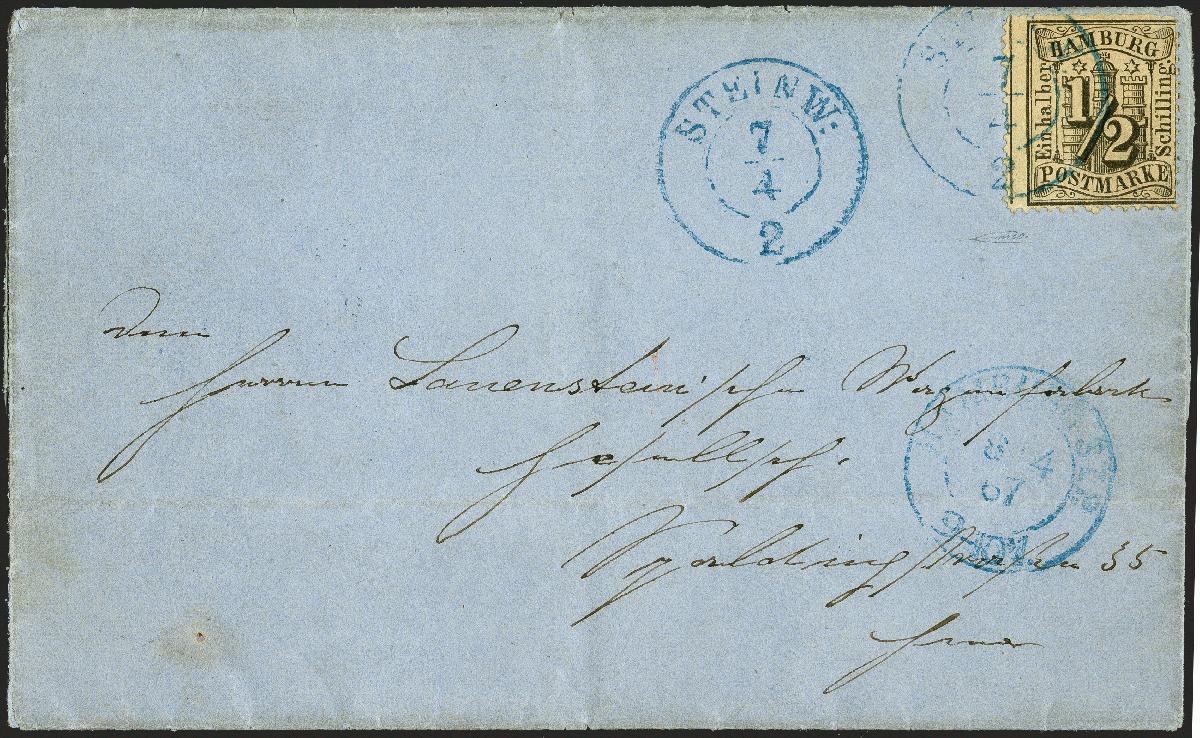 HAMBURG
Einhalber
1/2
Schilling.
POSTMARKE
STEINW:
7
4
2
Herren Lauenstein'schen Wagenfabrik
Gesellsch.
8 4
67
Spaldingstraßen 35
hier